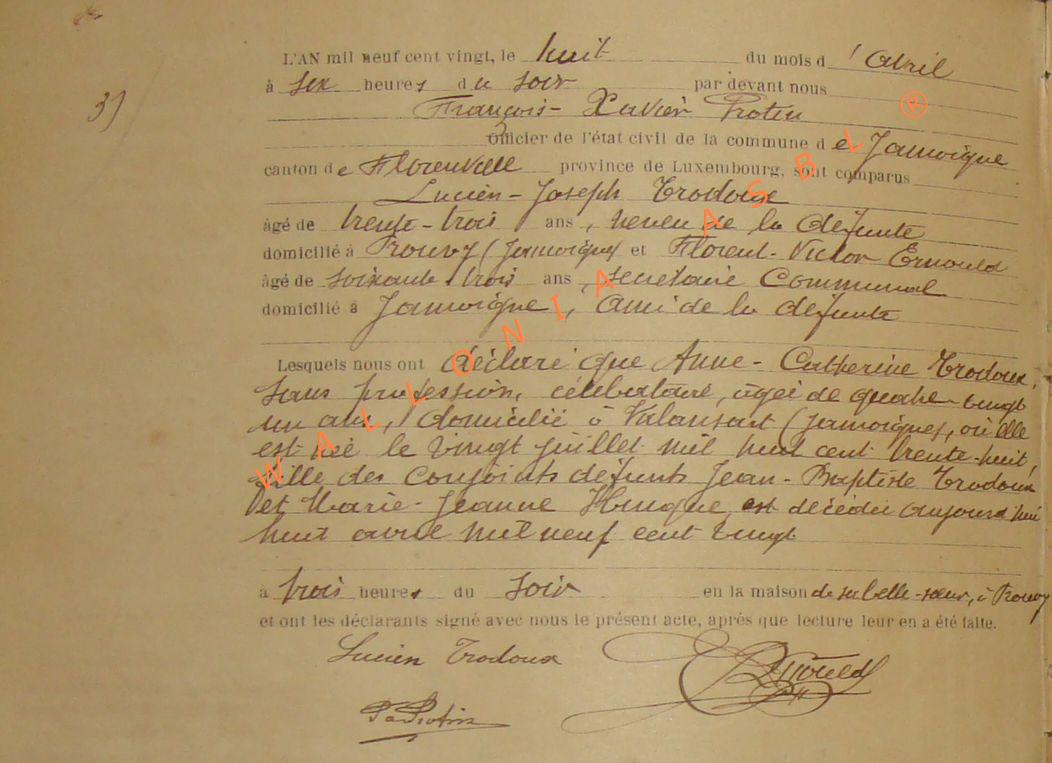 L'AN mil neuf cent vingt, le huit du mois d'avril
à six heures du soir par devant nous
37
François-Xavier Protin
Officier de l'état civil de la commune de Jamoigne
canton de Florenville province de Luxembourg, sont comparus
Lucien-Joseph Trodoux
âgé de trente-trois ans, neveu de la défunte
domicilié à Prouvy (Jamoigne) et Florent-Victor Ernould
âgé de soixante trois ans, secrétaire communal
domicilié à Jamoigne, ami de la défunte
Lesquels nous ont déclaré que Anne-Catherine Trodoux,
sans profession, célibataire, âgée de quatre-vingt
un ans, domicilié à Valansart (Jamoigne), où elle
est née le vingt juillet mil huit cent trente-huit,
fille des conjoints défunts Jean-Baptiste Trodoux
et Marie-Jeanne est décédée aujourd'hui
huit avril mil neuf cent vingt
à trois heures du soir en la maison de sa belle-sœur, à Prouvy
et ont les déclarants signé avec nous le présent acte, après que lecture leur en a été faite.
Lucien Trodoux Ernould
Protin
WALLONIA ASBL ®